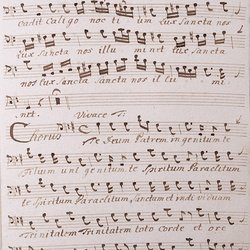 Cadit Caligo nocti um lux Sancta nos
lux Sancta nos illu mi net lux Sancta
nos lux Sancta Sancta nos il lu mi
net. Vivace T:
Chorus Te Deum Patrem ingenitum te
Filium uni genitum te Spiritum Paraclitum
te Spiritum Paraclitum, Sanctam et indi viduam
Trinitatem Trinitatem toto corde et ore